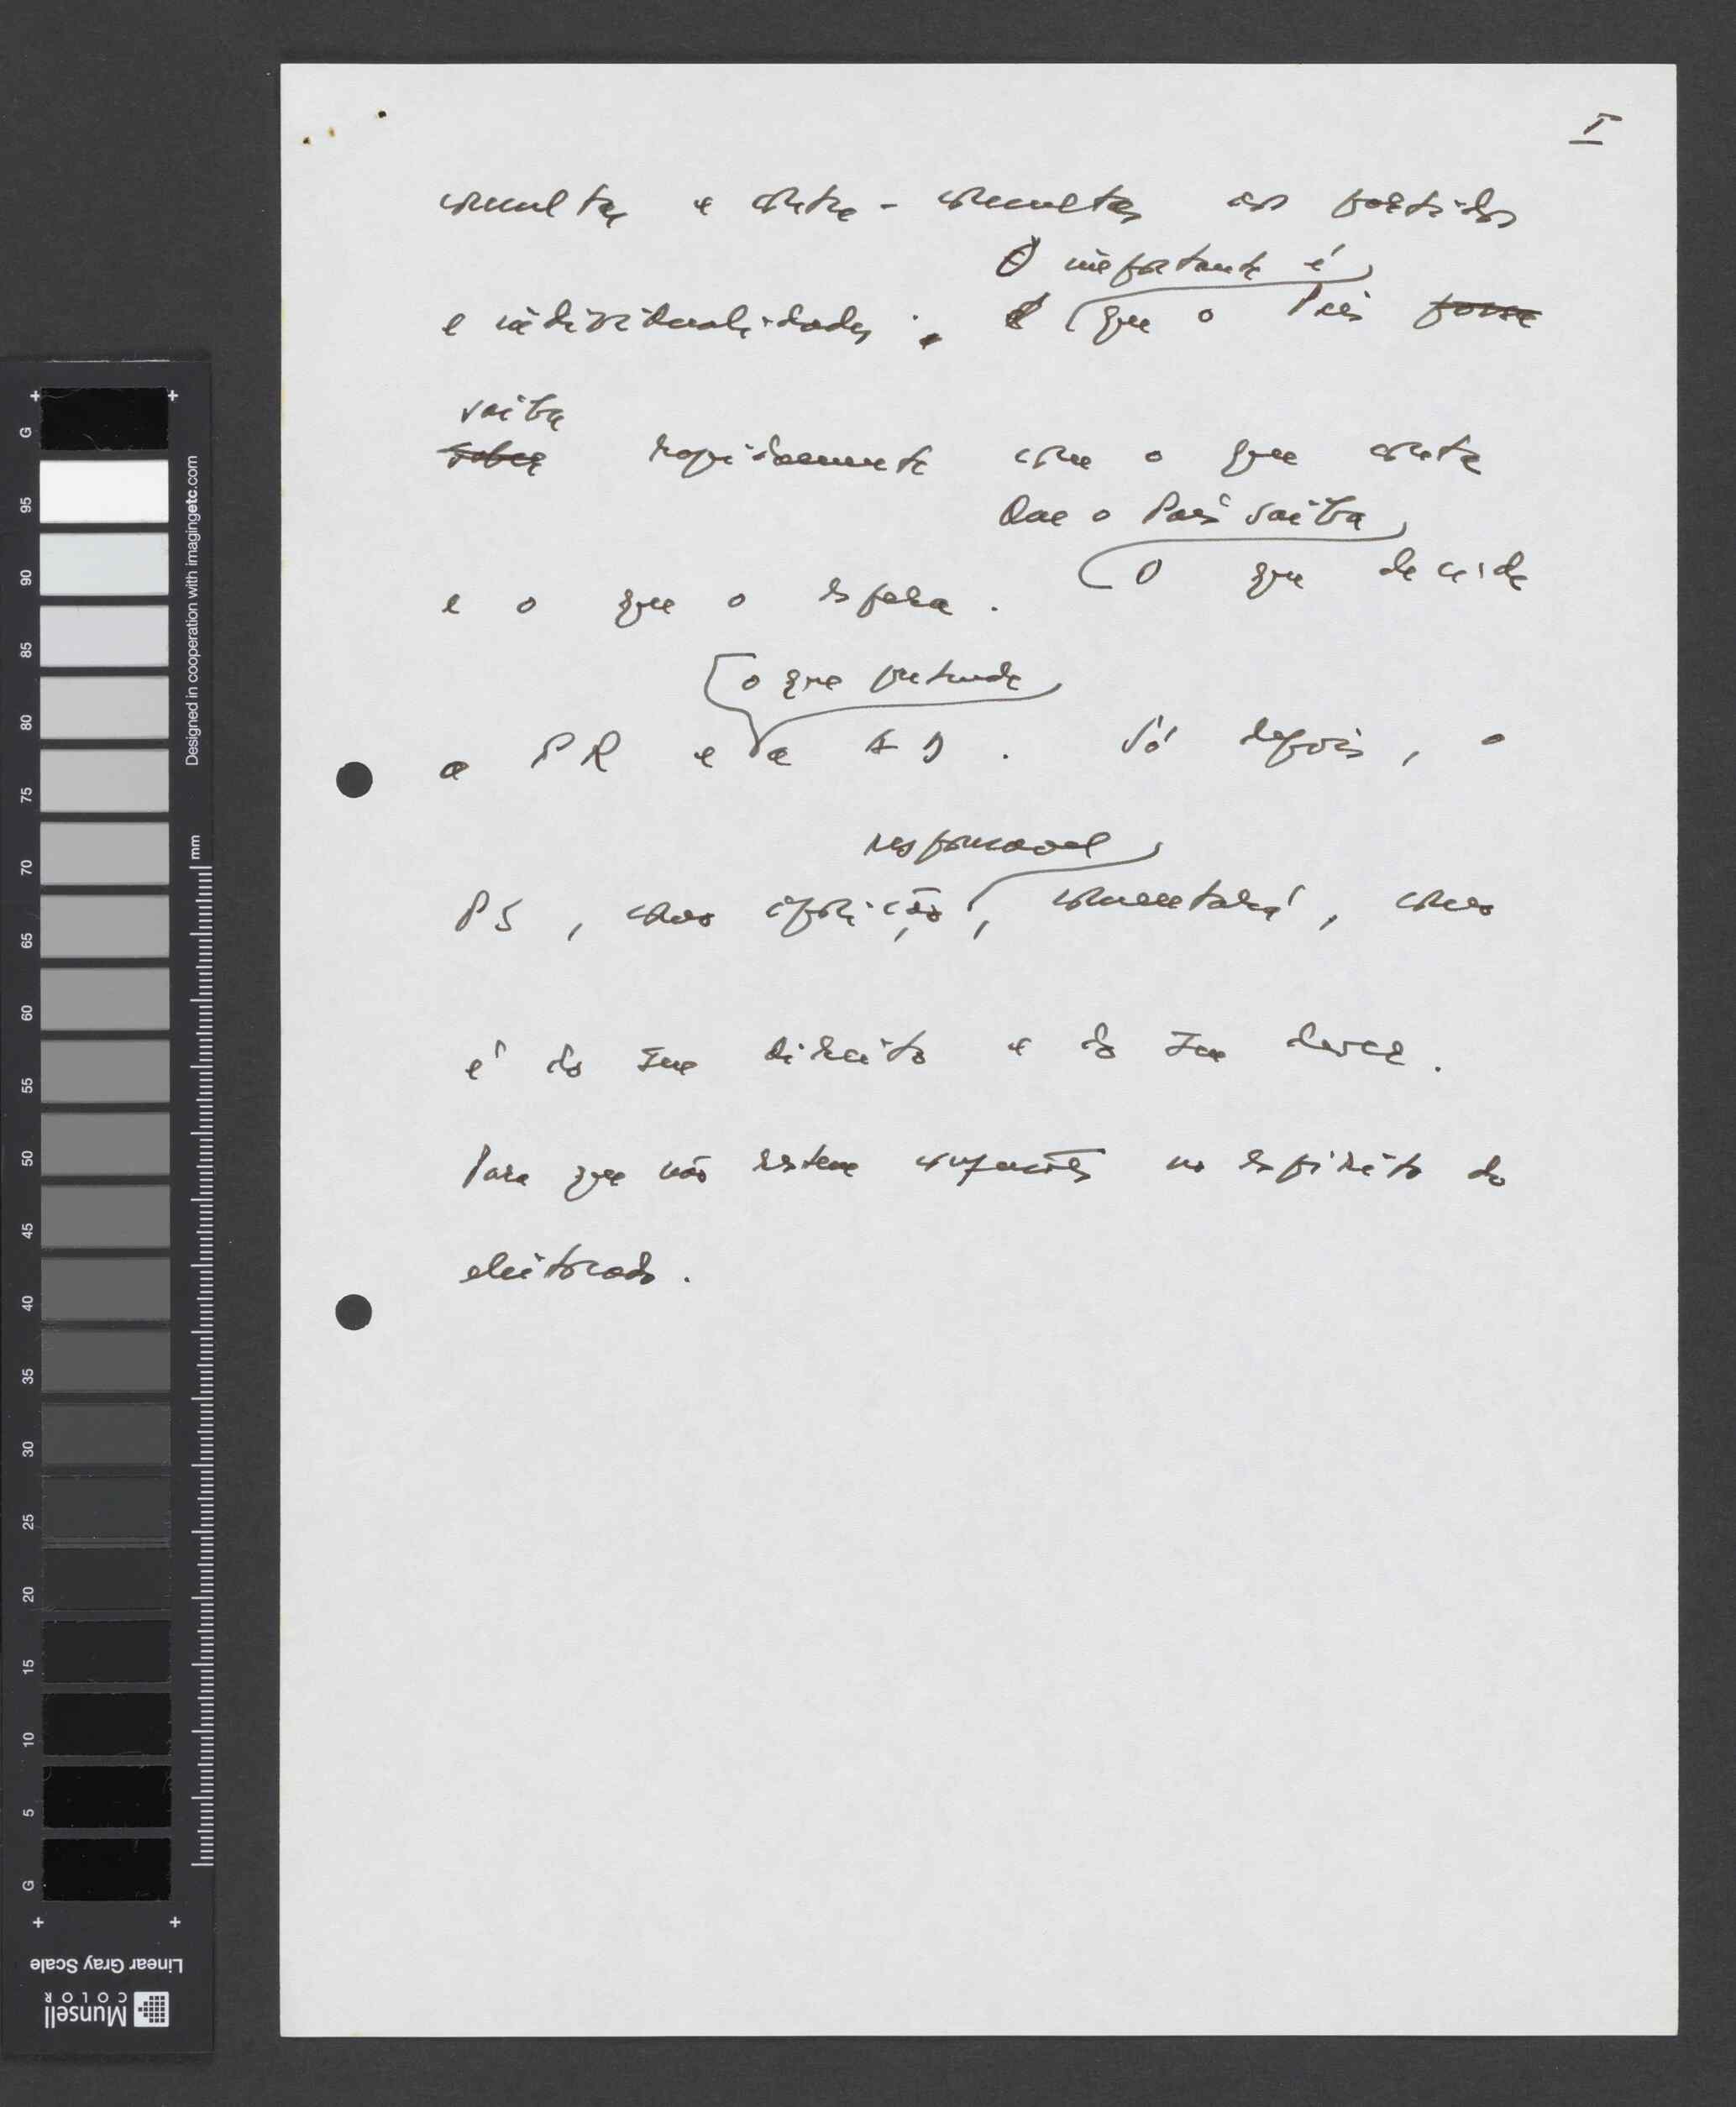 I
consultas e contra-consultas aos partidos
O importante é
e individualidades. É que o País possa
saiba
saber rapidamente com o que conta
Que o País saiba
e o que o espera. O que decide
o que pretende
o PR e a AD. Só depois, o
responsável
PS, como oposição, comentará, como
é do seu direito e do seu dever.
Para que não restem confusões no espírito do
eleitorado.
G
95
90
85
80
75
70
65
60
55
50
45
40
35
30
25
20
15
10
5
G
mm
Designed in cooperation with imagingetc.com
Linear Gray Scale
Munsell
COLOR